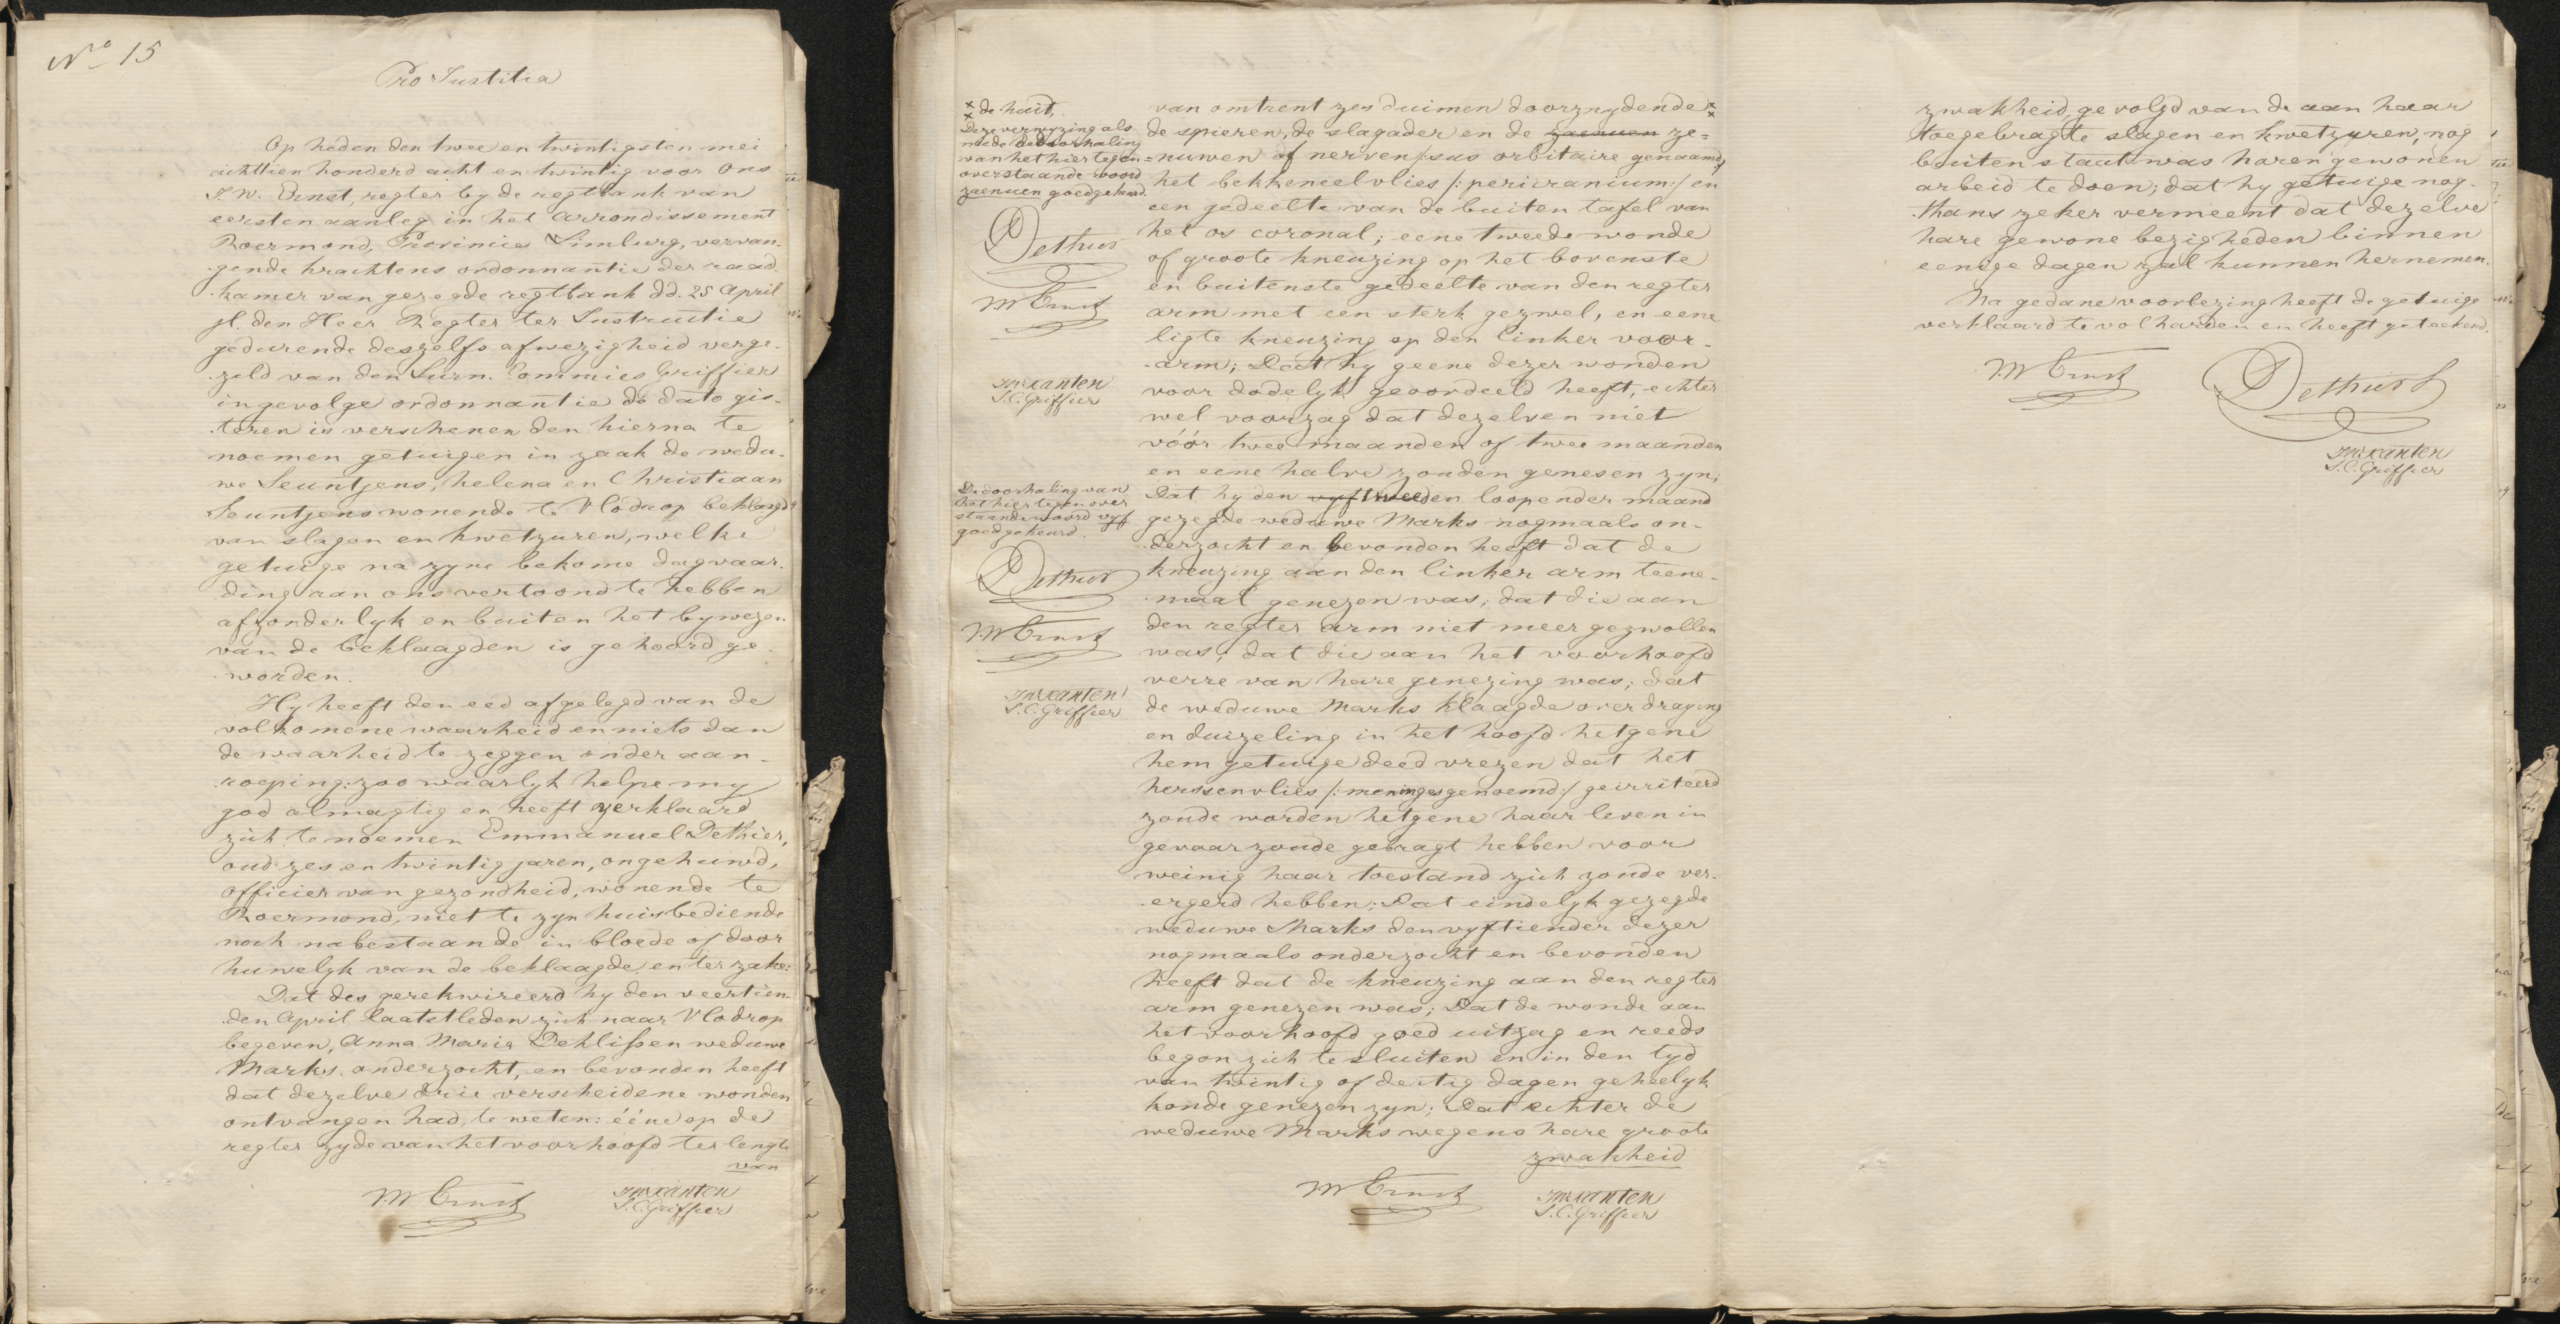 No 15
Pro Justitia
Op heden den twee en twintigsten mei
achttien honderd acht en twintig voor ons
J. W. Ernst, regter by de regtbank van
eersten aanleg in het arrondissement
Roermond, Provincie Limburg, vervan-
gende krachtens ordonnantie der raad
kamer van gezegde regtbank dd. 25 april
jl. den Heer Regter ter Instructie
gedurende deszelfs afwezigheid verge-
zeld van den Surn. Commies Griffier
ingevolge ordonnantie de dato gis-
teren is verschenen den hierna te
noemen getuigen in zaak de wedu-
we Seuntjens, helena en Christiaan
Seuntjens wonende te Vlodrop beklaagd
van slagen en kwetzuren, welke
getuige na zyne bekome dagvaar-
ding aan ons vertoond te hebben
afzonderlyk en buiten het bywezen
van de beklaagden is gehoord ge-
worden.
Hy heeft den eed afgelegd van de
volkomene waarheid en niets dan
de waarheid te zeggen onder aan-
roeping: zoo waarlyk helpe my
god almagtig en heeft verklaard
zich te noemen Emmanuel Dethier,
oud zes en twintig jaren, ongehuwd,
officier van gezondheid, wonende te
Roermond, niet te zyn huisbediende
noch nabestaande in bloede of door
huwelyk van de beklaagde, en ter zake:
Dat des gerekwireerd hy den veertien-
den april laatstleden zich naar Vlodrop
begeven, Anna Maria Dehlissen weduwe
Marks. onderzocht, en bevonden heeft
dat dezelve drie verscheidene wonden
ontvangen had, te weten: ééne op de
regter zyde van het voorhoofd ter lengte
van
JW Ernst
JM Kanten
S. C. Griffier
x de huid,
x
Deze verwyzing als
mede de doorhaling
van het hier tegen-
overstaande woord
zaenuen goedgekeurd.
Dethier
JW Ernst
JM Kanten
S. C. Griffier
De doorhaling van
het hier tegen over
staande woord vyf
goedgekeurd.
Dethier
JW Ernst
JM Kanten
S. C. Griffier
van omtrent zes duimen doorznydende x
de spieren, de slagader en de zaenuen ze-
nuwen of nerven /:sus orbitaire genaamd:/
het bekkeneelvlies /:pericranium:/ en
een gedeelte van de buiten tafel van
het os coronal; eene tweede wonde
of groote kneuzing op het bovenste
en buitenste gedeelte van den regter
arm met een sterk gezwel, en eene
ligte kneuzing op den linker voor-
arm; Dat hy geene dezer wonden
voor dodelyk geoordeeld heeft, echter
wel voorzag dat dezelven niet
vóór twee maanden of twee maanden
en eene halve zouden genesen zyn;
Dat hy den vyf tweeden loopender maand
gezegde weduwe Marks nogmaals on-
derzocht en bevonden heeft dat de
kneuzing aan den linker arm teene-
maal genezen was, dat die aan
den regter arm niet meer gezwollen
was, dat die aan het voorhoofd
verre van hare genezing was; dat
de weduwe Marks klaagde over draying
en duizeling in het hoofd hetgene
hem getuige deed vrezen dat het
herssenvlies /:meninges genoemd:/ geirriteerd
zoude worden hetgene haar leven in
gevaar zoude gebragt hebben voor
weinig haar toestand zich zoude ver-
ergerd hebben; Dat eindelyk gezegde
weduwe Marks den vyftiender dezer
nogmaals onderzocht en bevonden
heeft dat de kneuzing aan den regter
arm genezen was; Dat de wonde aan
het voorhoofd goed uitzag en reeds
begon zich te sluiten en in den tyd
van twintig of dertig dagen geheelyk
konde genezen zyn; Dat echter de
weduwe Marks wegens hare groote
zwakheid
JW Ernst
JM Kanten
S. C. Griffier
zwakheid, gevolgd van de aan haar
toegebragte slagen en kwetzuren, nog
buiten staat was haren gewonen
arbeid te doen; dat hy getuige nog-
thans zeker vermeent dat dezelve
hare gewone bezigheden binnen
eenige dagen zal kunnen hernemen.
Na gedane voorlezing heeft de getuige
verklaard te volharden en heeft geteekend.
JW Ernst
Dethier
JM Kanten
S. C. Griffier